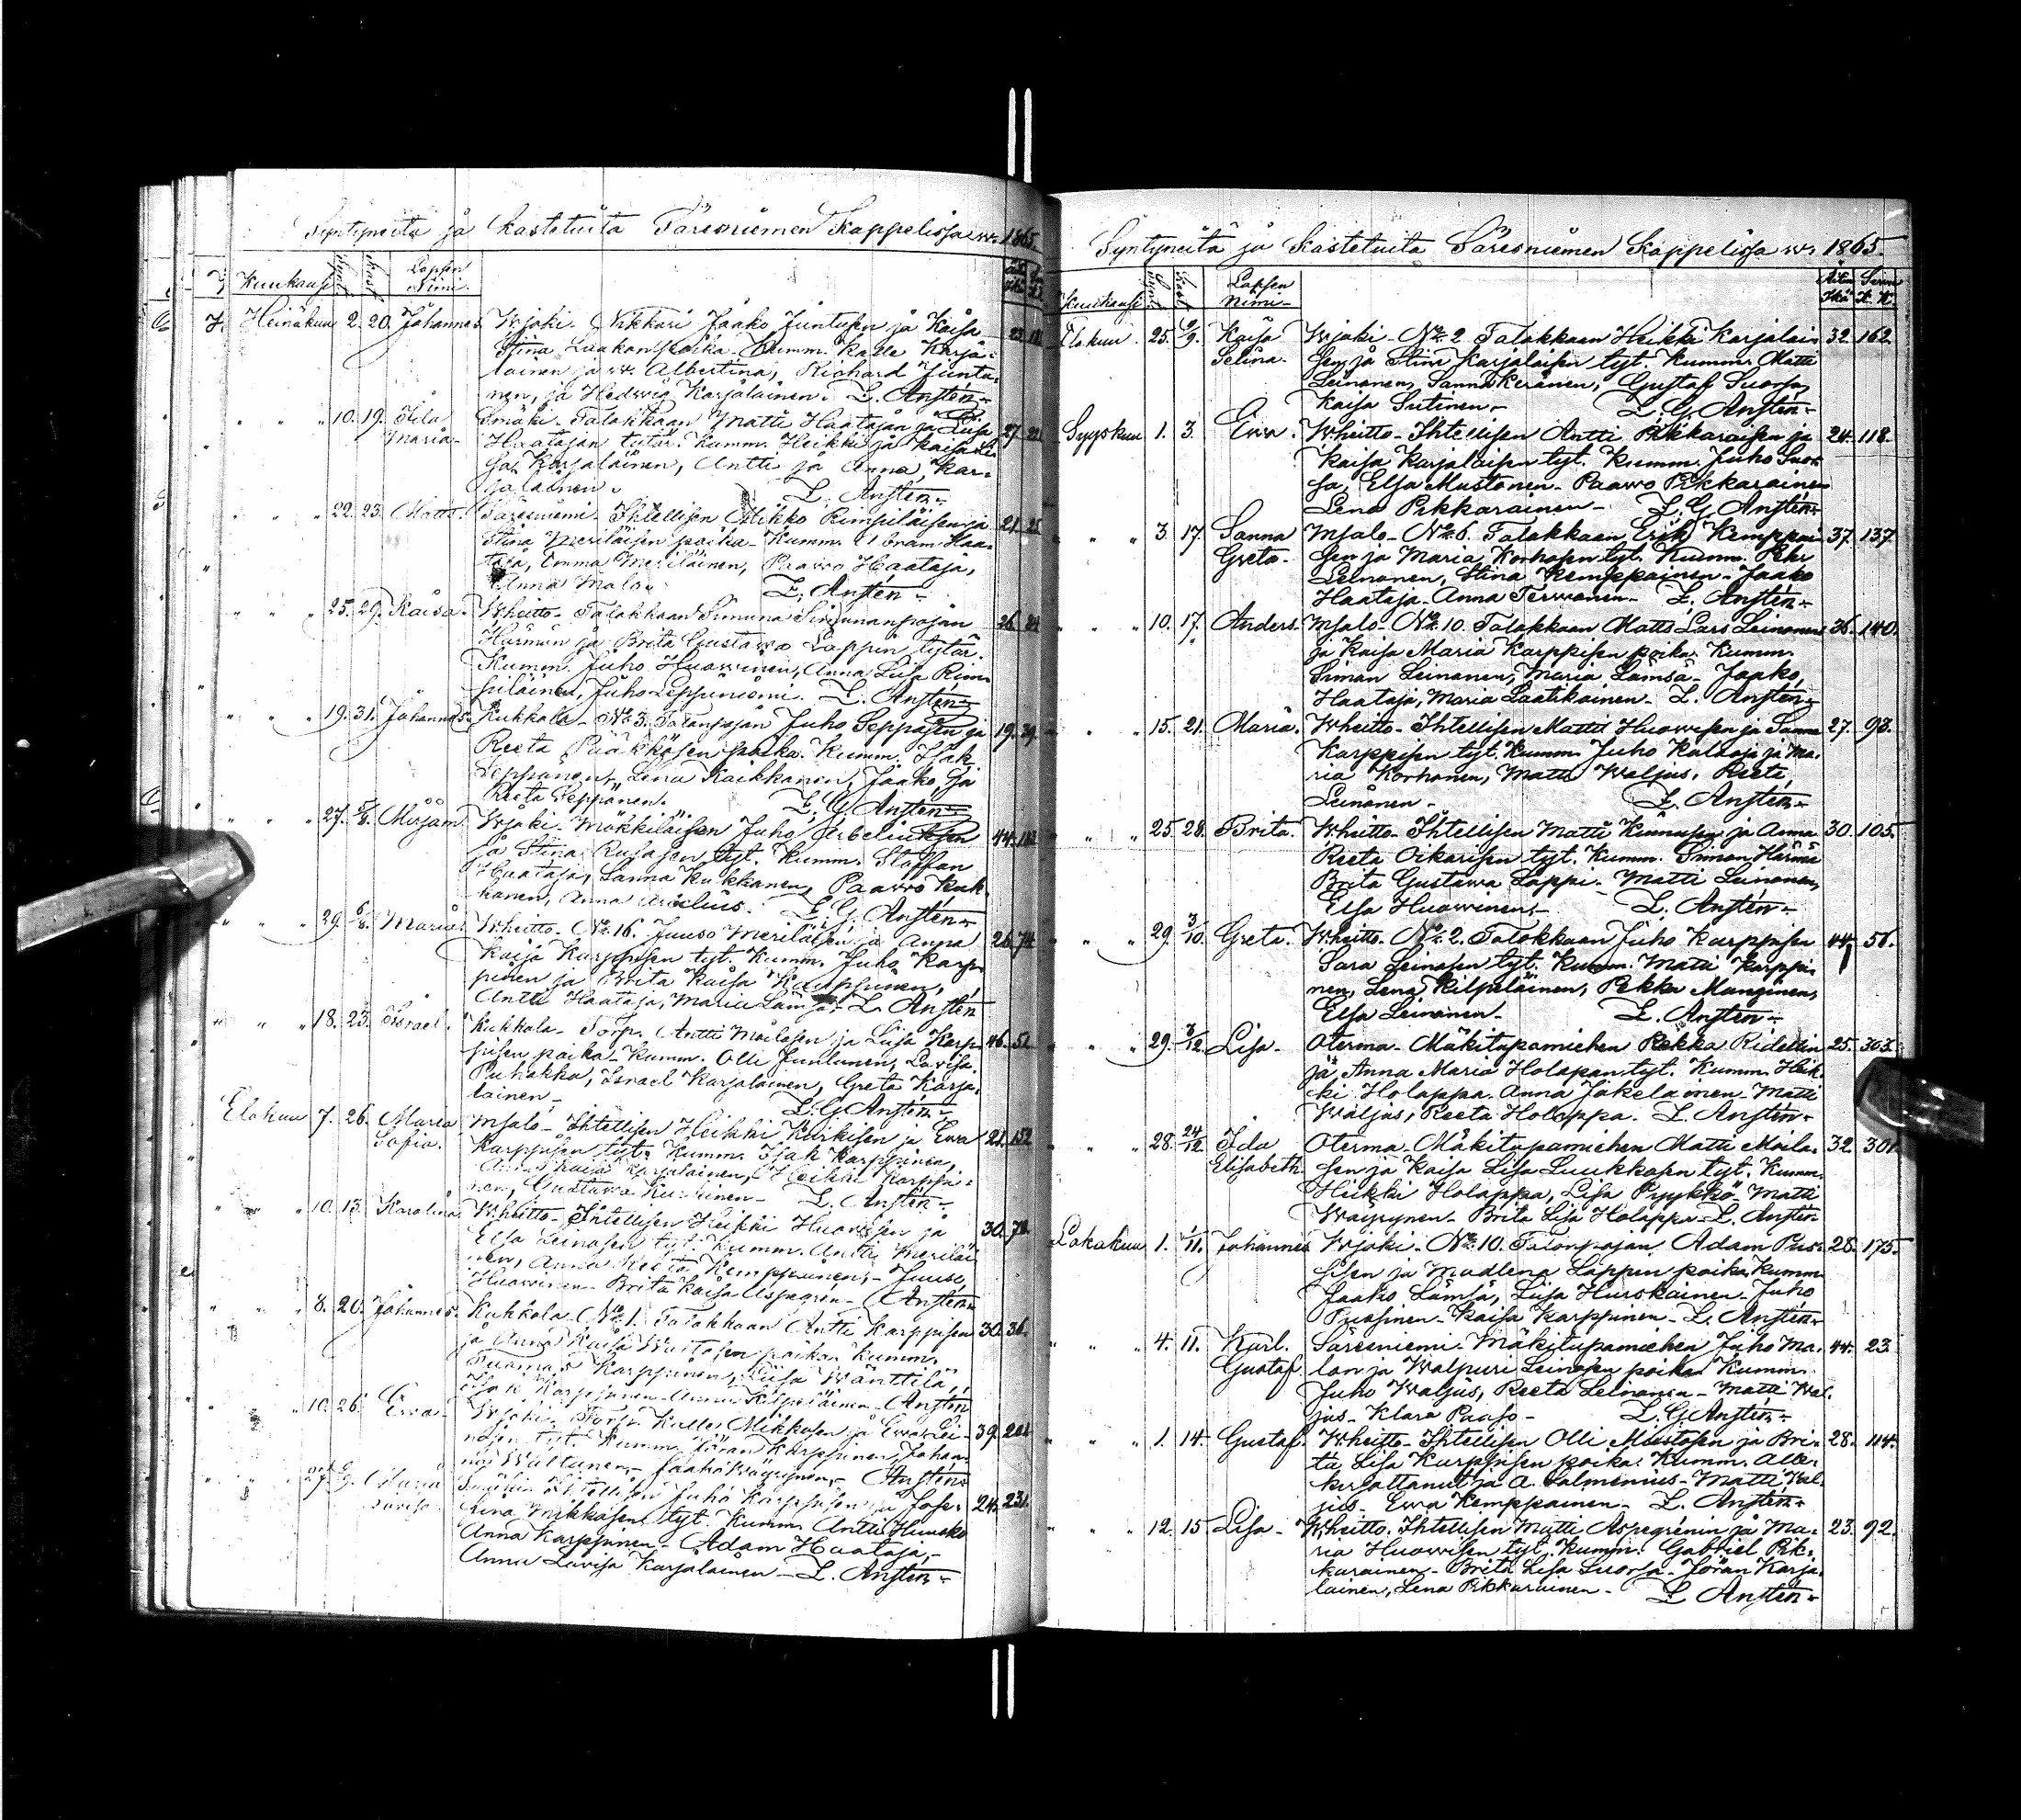 Syntyneitä ja kastetuita Säresniemen Kappelissa w. 1865.
Kuukausi Synt. Kast. Lapsen Nimi. Äitin Ikä
Heinäkuu 2. 20. Johannes. Wjoki. Nikkari Jaako Juntusen ja Kaisa 23.
Stina Laakon poika. Kumm. Kalle Karja-
lainen ja w. Albertina, Richard Juntu-
nen, ja Hedwig Karjalainen. L. Anstén
" 10. 19. Ida Maria. Smäki. Talokkaan Matti Haatajan ja Liisa 27.
Haatajan tytär. Kumm. Heikki ja Kaisa Li-
sa Karjalainen, Antti ja Anna Kar-
jalainen. L. Anstén
" 22. 23. Matts. Säresniemi. Ihtellisen Mikko Rimpiläisen ja 21. 25
Stina Meriläisen poika. Kumm. Abram Haa-
taja, Emma Meriläinen, Paawo Haataja,
Anna Malo. L. Anstén
" 25. 29. Kaisa. Wheitto. Talokkaan Simuna Simunanpojan 26. 84
Härmän ja Brita Gustawa Lappin tytär.
Kumm. Juho Huowinen, Anna Liisa Rim-
piläinen, Juho Leppiniemi. L. Anstén
" 19. 31. Johannes. Kukkola. No 5. Talonpojan Juho Seppäsen ja 19. 39.
Reeta Pääkkösen poika. Kumm. Isak
Seppänen, Lena Kaikkonen, Jaako ja
Reeta Seppänen. L. G. Anstén
" 27. 6/8. Mirjam. Wjoki. Mökkiläisen Juho Arbeliuksen 44.
ja Stina Rusasen tyt. Kumm. Staffan
Haataja, Sanna Kukkonen, Paawo Kuk-
konen, Anna Arbelius. L. G. Anstén
" 29. 6/8. Maria. Wheitto. No 16. Juuso Meriläisen ja Anna 26. 74
Kaisa Karppisen tyt. Kumm. Juho Karp-
pinen ja Brita Kaisa Karppinen,
Antti Haataja, Maria Lämsä. L. Anstén
" 18. 23. Israel. Kukkola. Torp. Antti Moilasen ja Liisa Karp- 46. 51
pisen poika. Kumm. Olli Juntunen, Lovisa
Puhakka, Israel Karjalainen, Greta Karja-
lainen. L. G. Anstén
Elokuu 7. 26. Maria Sofia. Msalo. Ihtellisen Heikki Kärkisen ja Ewa 21. 152
Karppisen tyt. Kumm. Isak Karppinen,
Anna Kaisa Karjalainen, Heikki Karppi-
nen, Gustawa L. Anstén
" 10. 13. Karolina. Wheitto. Ihtellisen Heikki Huowisen ja 30. 72
Elsa Leinosen tyt. Kumm. Antti Meriläi-
nen, Anna Reeta Kemppainen, Juuso
Huowinen. Brita Kaisa Aspegrén. Anstén
" 8. 20. Johannes. Kukkola. No 1. Talokkaan Antti Karppisen 30. 36.
ja Anna Kaisa Wuotosen poika. Kumm.
Tuomas Karppinen, Liisa Wänttilä,
Isak Karppinen. Anna Kilpeläinen. Anstén
" 10. 26. Ewa. Wjoki. Torp. Kalle Mikkosen ja Ewa Lei- 39. 201
nosen tyt. Kumm. Jöran Karppinen, Johan-
na Wältanen, Jaako Wäyrynen. Anstén
" Maria Lovisa. Smäki. Ihtellisen Juho Karppisen ja Jose- 24. 231.
fiina Mikkosen tyt. Kumm. Antti Huusko
Anna Karppinen. Adam Haataja,
Anna Lovisa Karjalainen. L. Anstén
Syntyneitä ja Kastetuita Säresniemen Kappelissa w. 1865.
Kuukausi Synt. Kast. Lapsen Nimi. Äitin Ikä Siwu K. K.
Elokuu. 25. 9/9. Kaisa Selina. Wjoki. No 2. Talokkaan Heikki Karjalai- 32. 162.
sen ja Stina Karjalaisen tyt. Kumm. Matti
Leinonen, Sanna Keränen, Gustaf Suorsa,
Kaisa Sutinen. L. G. Anstén
Syyskuu 1. 3. Ewa. Wheitto. Ihtellisen Antti Pikkaraisen ja 24. 118.
Kaisa Karjalaisen tyt. Kumm. Juho Suor-
sa, Elsa Mustonen. Paawo Pikkarainen
Lena Pikkarainen. L. G. Anstén
" 3. 17. Sanna Greta. Msalo. No 6. Talokkaan Erik Kemppai- 37. 137.
sen ja Maria Korhosen tyt. Kumm. Erki
Leinonen, Stina Kemppainen. Jaako
Haataja. Anna Terwonen. L. Anstén
" 10. 17. Anders. Msalo. No 10. Talokkaan Matts Lars Leinonen 36. 140.
ja Kaisa Maria Karppisen poika. Kumm.
Simon Leinonen, Maria Lämsä. Jaako,
Haataja, Maria Laatikainen. L. Anstén
" 15. 21. Maria. Wheitto. Ihtellisen Matti Huowisen ja Sanna 27. 93.
Karppisen tyt. Kumm. Juho Kataja ja Ma-
ria Korhonen, Matti Waljus, Reeta
Leinonen. L. Anstén
" 25. 28. Brita. Wheitto. Ihtellisen Matti Kinnusen ja Anna 30. 105.
Reeta Oikarisen tyt. Kumm. Simon Härmä
Brita Gustawa Lappi. Matti Leinonen,
Elsa Huowinen. L. Anstén
" 29. 3/10. Greta. Wheitto. No 2. Talokkaan Juho Karppisen 44. 58.
Sara Leinosen tyt. Kumm. Matti Karppi-
nen, Lena Kilpeläinen, Pekka Manginen,
Elsa Leinonen. L. Anstén
" 29. 3/12. Lisa. Oterma. Mäkitupamiehen Pekka 25. 303.
ja Anna Maria Holapan tyt. Kumm. Heik-
ki Holappa. Anna Jokelainen. Matti
Waljus, Reeta Holappa. L. Anstén
" 28. 24/12. Ida Elisabeth. Oterma. Mäkitupamiehen Matti Moila- 32. 301.
sen ja Kaisa Lisa Luukkosen tyt. Kumm.
Heikki Holappa, Lisa Pyykkö. Matti
Wäyrynen. Brita Lisa Holappa. L. Anstén
Lokakuu 1. 11. Johannes. Wjoki. No 10. Talonpojan Adam Puo- 28. 175.
sisen ja Madlena Lappin poika. Kumm.
Jaako Lämsä, Liisa Hurskainen. Juho
Puosinen. Kaisa Karppinen. L. Anstén
" 4. 11. Karl. Gustaf. Säresniemi. Mäkitupamiehen Juho Ma- 44. 23.
lon ja Walpuri Leinosen poika. Kumm.
Juho Waljus, Reeta Leinonen. Matti Wal-
jus. Klara Paaso. L. G. Anstén
" 1. 14. Gustaf. Wheitto. Ihtellisen Olli Mustosen ja Bri- 28. 114.
ta Lisa Karppisen poika. Kumm. Alle-
kirjottanut ja A. Salmenius. Matti Wal-
jus. Ewa Kemppainen. L. Anstén
" 12. 15. Lisa. Wheitto. Ihtellisen Matti Aspegrénin ja Ma- 23. 92.
ria Huowisen tyt. Kumm. Gabriel Pik-
karainen. Brita Lisa Suorsa. Jöran Karja-
lainen, Lena Pikkarainen. L. Anstén